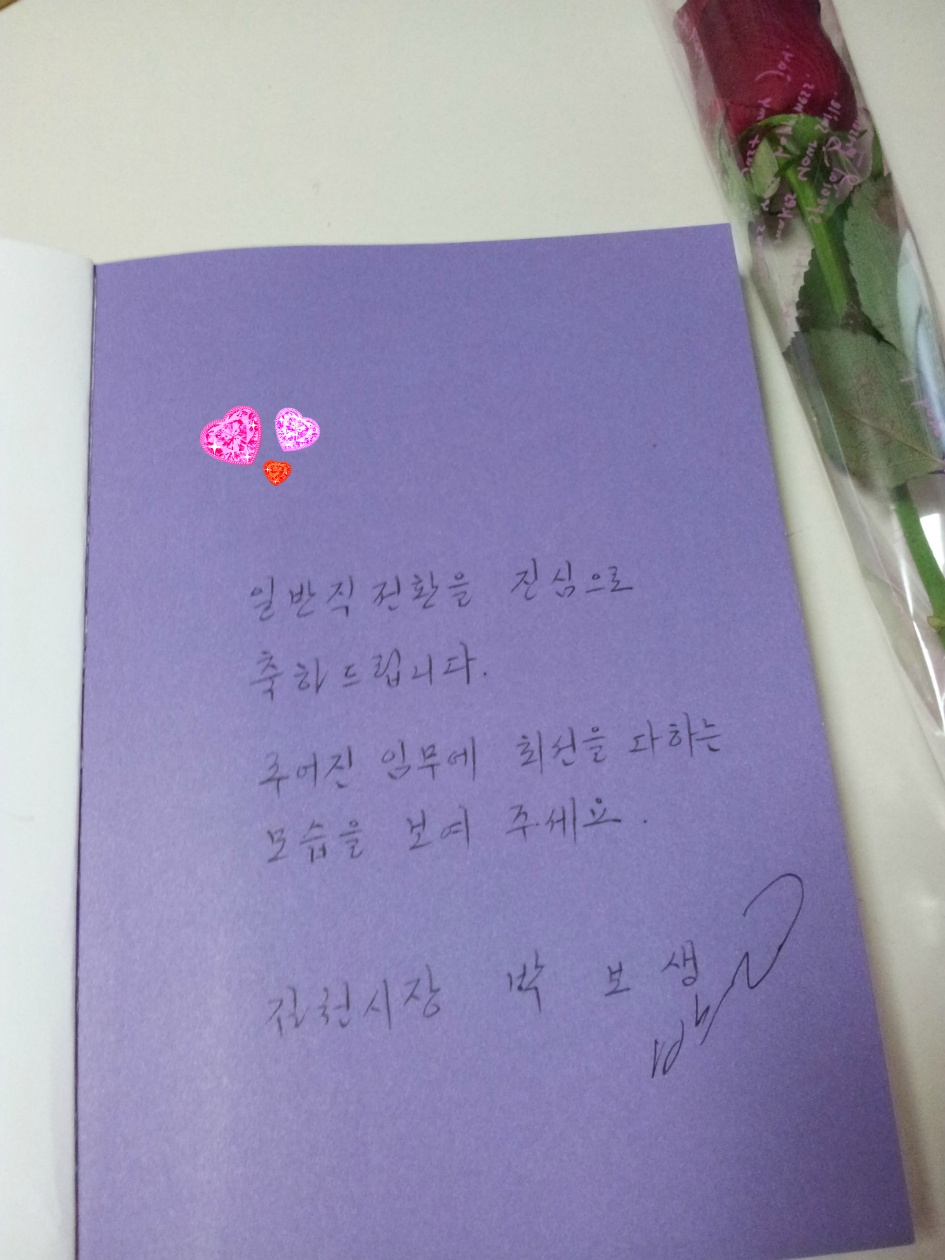 일반직 전환을 진심으로
축하 드립니다.
주어진 임무에 최선을 다하는
모습을 보여 주세요.
김천시장 박 보 생